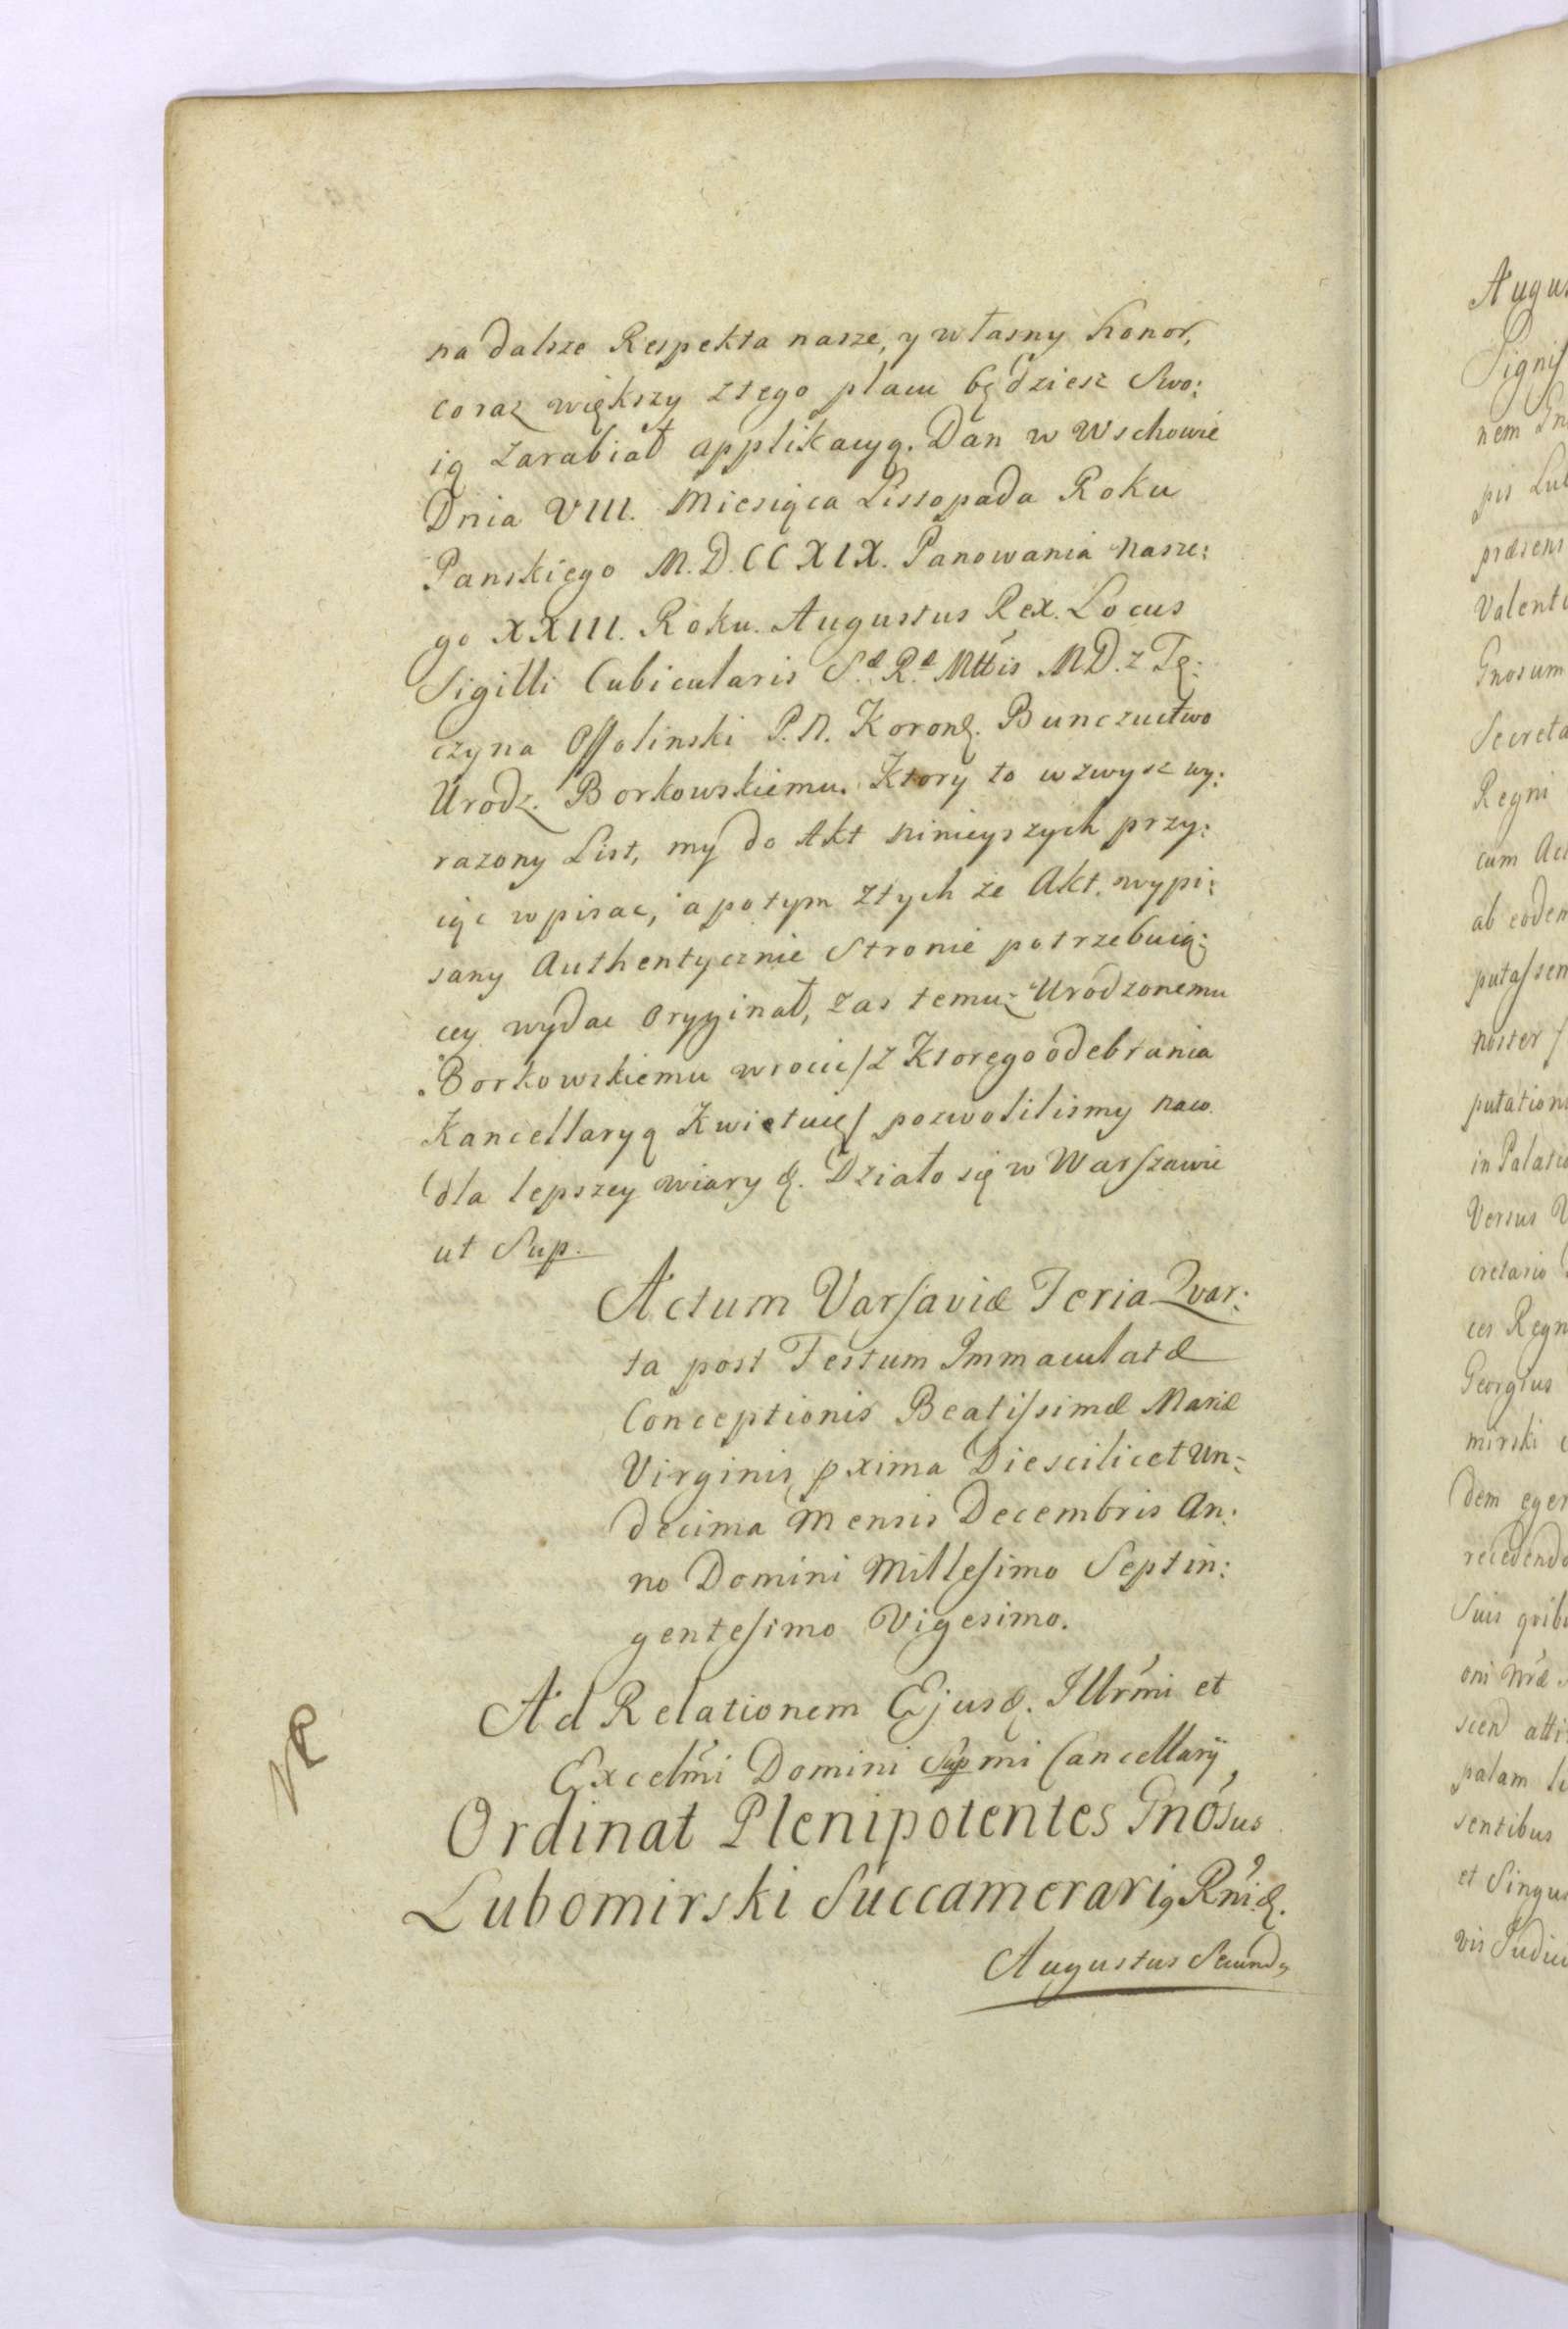 na dalsze Respekta nasze, y własny honor,
coraz większy ztego placu będziesz Swo:
ią zarabiał applikacyą. Dan w Wschowie
Dnia VIII. Miesiąca Listopada Roku
Panskiego M.D.CCXIX. Panowania Nasze:
go XXIII. Roku. Augustus Rex. Locus
Sigilli Cubicularis Sæ Ræ Mttis MD. z Tę:
czyna Ossolinski P.N. Koronę. Bunczuctwo
Urodz. Borkowskiemu. Ktory to wzwysz wy:
razony List, my do Akt ninieyszych przy:
iąc wpisac, a potym ztych ze Akt. wypi:
sany Authentycznie Stronie potrzebuią:
cey wydac Oryginał, zas temuz Urodzonemu
Borkowskiemu wrocic/z Ktorego odebrania
Kancellaryą Kwietuię/ pozwolilismy naco.
dla lepszey wiary &. Działo się w Warszawie
ut Sup.
Actum Varsaviæ Feria Qvar:
ta post Festum Immaculatæ
Conceptionis Beatissimæ Mariæ
Virginis pxima Die scilicet Un:
decima Mensis Decembris An:
no Domini Millesimo Septin:
gentesimo Vigesimo.
Ad Relationem Ejusd. Illrmi et
Excelmi Domini Supmi Cancellarij
Ordinat Plenipotentes Gnosus
Lubomirski Succamerarig Rni &.
Augustus Secundg
Augus
Signif
nem
pis Lub
præsens
Valent
Gnosum
Secreta
Regni
cum Ac
ab eodem
putassen
noster
putation
in Palatio
Versus
cretario
ces Regn
Georgius
mirski
dem eger
recedendo
Suis qvib
oni Nræ
scend atti
palam
sentibus
et Singu
vis Judici